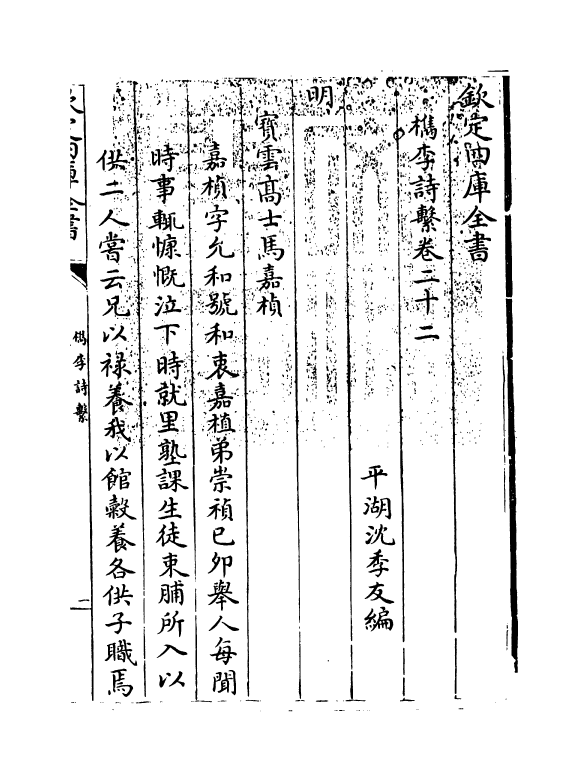 欽定四庫全書
檇李詩繫卷二十二
平湖沈季友編
明
寳雲髙士馬嘉楨
嘉楨字允和號和衷嘉植弟崇禎己卯舉人每聞
時事輒慷慨泣下時就里塾課生徒束脯所入以
供二人嘗云兄以祿養我以館穀養各供子職焉
欽定四庫全書
檇李詩繫
一